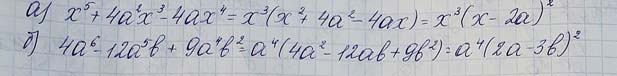 а) x⁵ + 4a²x³ - 4ax⁴ = x³(x² + 4a² - 4ax) = x³(x - 2a)²
б) 4a⁶ - 12a⁵b + 9a⁴b² = a⁴(4a² - 12ab + 9b²) = a⁴(2a - 3b)²